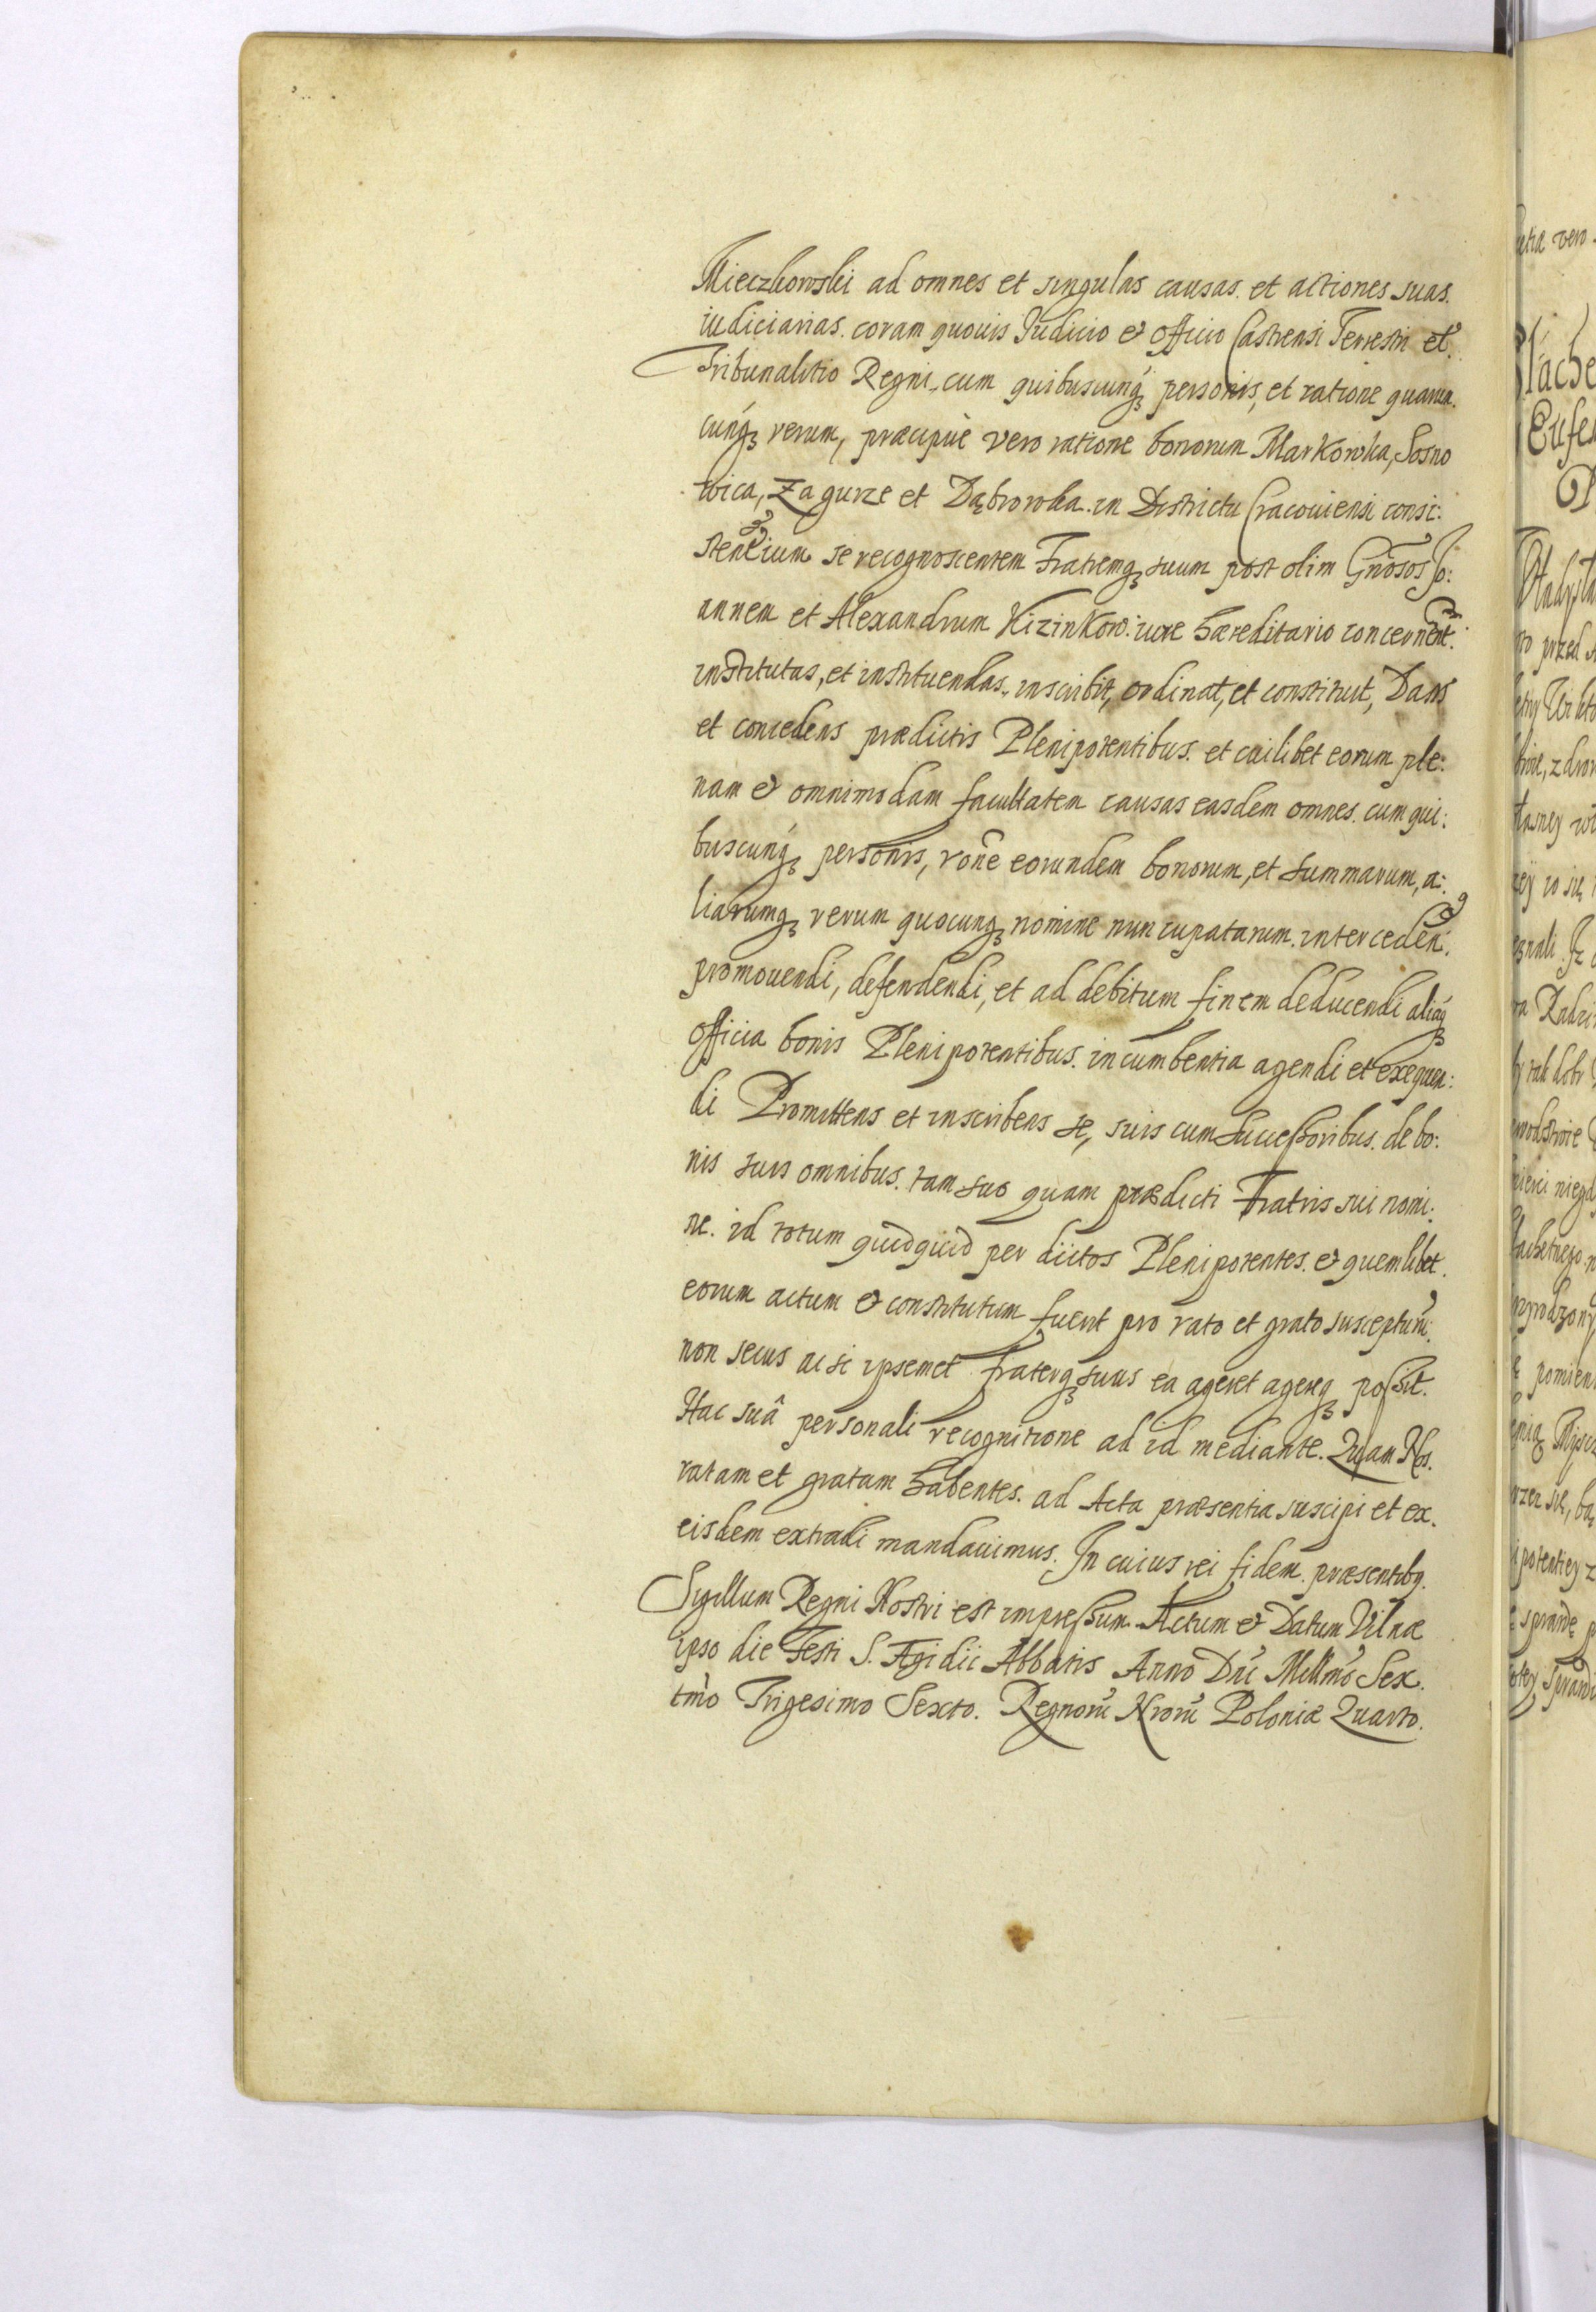 Mieczkowski ad omnes et singulas causas. et actiones suas.
iudiciarias. coram quouis Iudicio et Officio Castrensi Terrestri et.
Tribunalitio Regni, cum quibuscunq́ personis, et ratione quarum.
cunq́ rerum, præcipuè vero ratione bonorum Markowka, Sosno
wica, Zagurze et Dąbrowka. in Districtu Cracouiensi consi:
stentium se recognoscentem Fratremq suum post olim Gnosos Jo:
annem et Alexandrum Kizinkow. iure hæreditario concernent.
institutas, et instituendas, inscribit, ordinat, et constituit, Dans
et concedens prædictis Plenipotentibus. et cuilibet eorum ple:
nam et omnimodam facultatem causas easdem omnes. cum qui:
buscunq́ personis, rone eorundem bonorum, et summarum, a:
liarumq rerum quocunq nomine nuncupatarum. interceden.
promouendi, defendendi, et ad debitum finem deducendi aliaq́
officia bonis Plenipotentibus. incumbentia agendi et exequen:
di Promittens et inscribens se, suis cum Successoribus. de bo:
nis suis omnibus. tam suo quam prædicti Fratris sui nomi:
ne. id totum quidquid per dictos Plenipotentes. et quemlibet.
eorum actum et constitutum fuerit pro rato et grato suscepturu.
non secus ac si ipsemet fraterq suus ea ageret agereq possit.
Hac suâ personali recognitione ad id mediante. Quam Nos.
ratam et gratam habentes. ad Acta præsentia suscipi et ex.
eisdem extradi mandauimus. In cuius rei fidem. præsentibq.
Sigillum Regni Nostri est impressum. Actum et Datum Vilnæ
ipso die Festi S. Ægidii Abbatis Anno Dni Millmo Sex.
tmo Trigesimo Sexto. Regnoru Nroru Poloniæ Quarto.